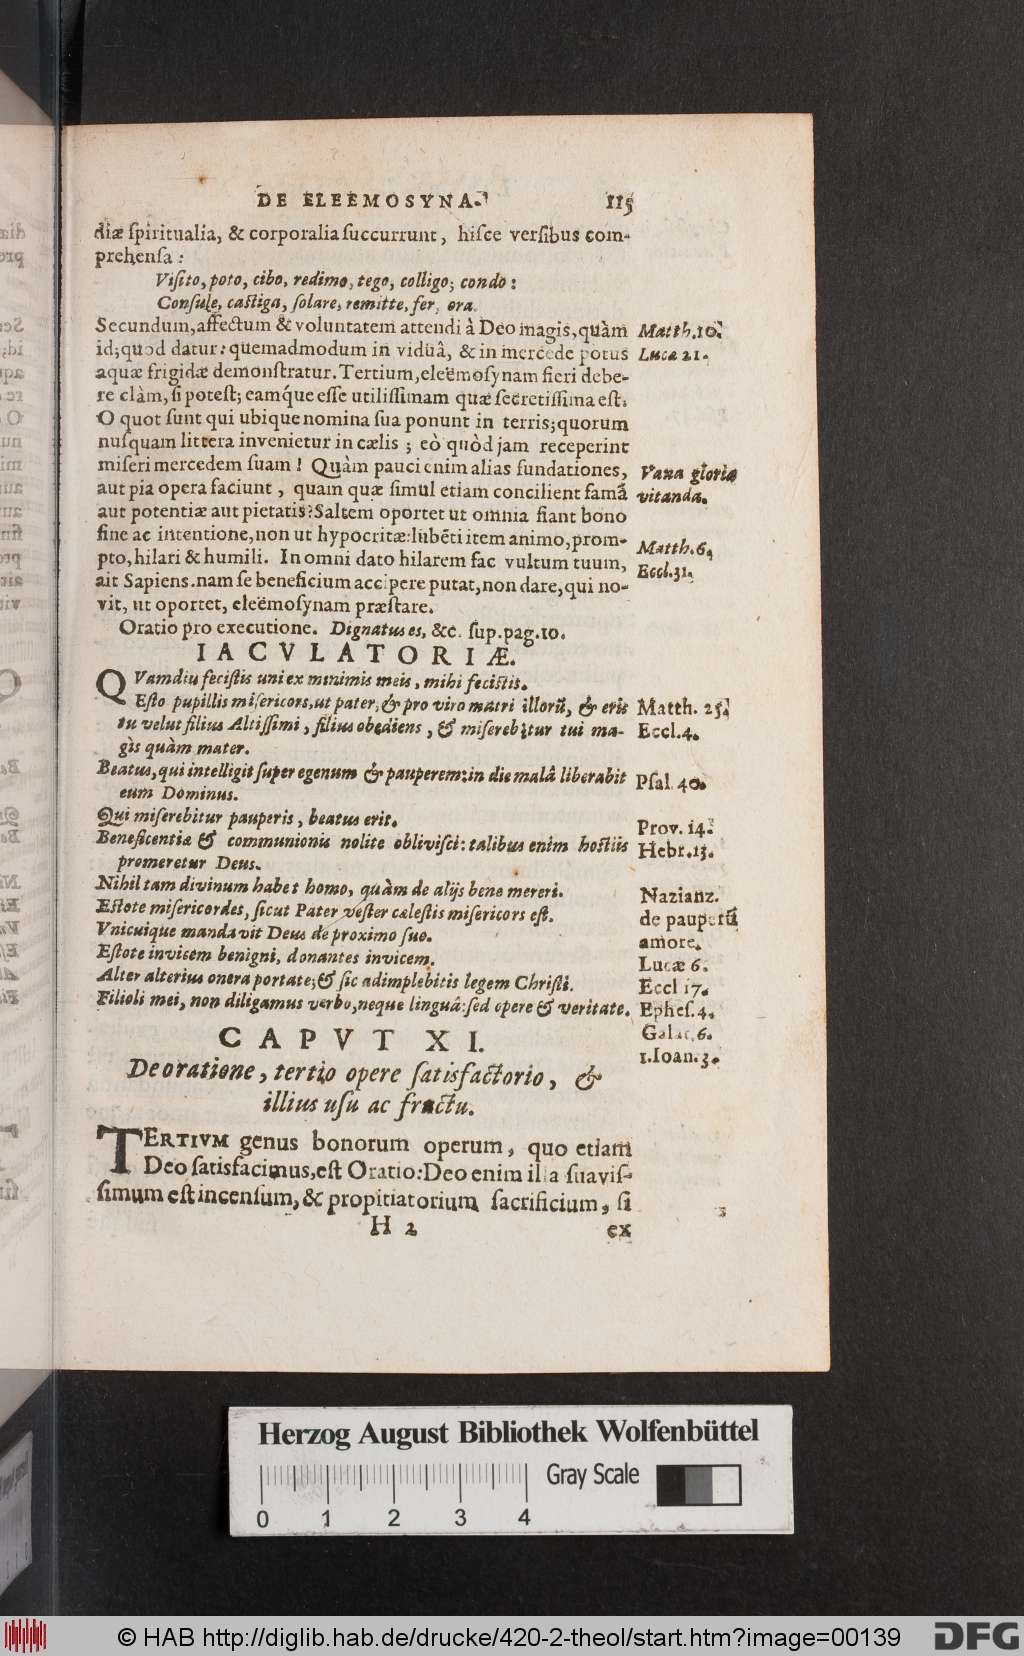 DE ELEEMOSYNA. 115
diæ ſpiritualia, & corporalia ſuccurrunt, hiſce verſibus com-
prehenſa:
Viſito, poto, cibo, redimo, tego, colligo, condo:
Conſule, caſtiga, ſolare, remitte, fer, ora.
Secundum, affectum & voluntatem attendi à Deo magis, quàm
id, quod datur: quemadmodum in viduâ, & in mercede potus
aquæ frigidæ demonſtratur. Tertium, eleëmoſynam fieri debe-
re clàm, ſi poteſt; eamq́ue eſſe utiliſſimam quæ ſecretiſſima eſt.
O quot ſunt qui ubique nomina ſua ponunt in terris; quorum
nuſquam littera invenietur in cælis; eò quòd jam receperint
miſeri mercedem ſuam! Quàm pauci enim alias fundationes,
aut pia opera faciunt, quam quæ ſimul etiam concilient famã
aut potentiæ aut pietatis? Saltem oportet ut omnia fiant bono
fine ac intentione, non ut hypocritæ: lubẽti item animo, prom-
pto, hilari & humili. In omni dato hilarem fac vultum tuum,
ait Sapiens. nam ſe beneficium accipere putat, non dare, qui no-
vit, ut oportet, eleëmoſynam præſtare.
Oratio pro executione. Dignatus es, &c. ſup. pag. 10.
IACVLATORIÆ.
QVamdiu feciſtis uni ex minimis meis, mihi feciſtis.
Eſto pupillis miſericors, ut pater, & pro viro matri illorũ, & eris
tu velut filius Altiſſimi, filius obediens, & miſerebitur tui ma-
gis quàm mater.
Beatus, qui intelligit ſuper egenum & pauperem: in die malâ liberabit
eum Dominus.
Qui miſerebitur pauperis, beatus erit.
Beneficentiæ & communionis nolite obliviſci: talibus enim hoſtiis
promeretur Deus.
Nihil tam divinum habet homo, quàm de alijs bene mereri.
Eſtote miſericordes, ſicut Pater veſter cæleſtis miſericors eſt.
Vnicuique mandavit Deus de proximo ſuo.
Eſtote invicem benigni, donantes invicem.
Alter alterius onera portate; & ſic adimplebitis legem Chriſti.
Filioli mei, non diligamus verbo, neque linguâ: ſed opere & veritate.
CAPVT XI.
De oratione, tertio opere ſatisfactorio, &
illius uſu ac fructu.
TERTIVM genus bonorum operum, quo etiam
Deo ſatisfacimus, eſt Oratio: Deo enim illa ſuaviſ-
ſimum eſt incenſum, & propitiatorium ſacrificium, ſi
H 2 ex
Matth. 10.
Luca 21.
Vana gloria
vitanda.
Matth. 6.
Eccl. 31.
Matth. 25.
Eccl. 4.
Pſal. 40.
Prov. 14.
Hebr. 13.
Nazianz.
de pauperũ
amore.
Lucæ 6.
Eccl 17.
Epheſ. 4.
Galat. 6.
1. Ioan. 3.
Herzog August Bibliothek Wolfenbüttel
Gray Scale
0 1 2 3 4
© HAB http://diglib.hab.de/drucke/420-2-theol/start.htm?image=00139
DFG